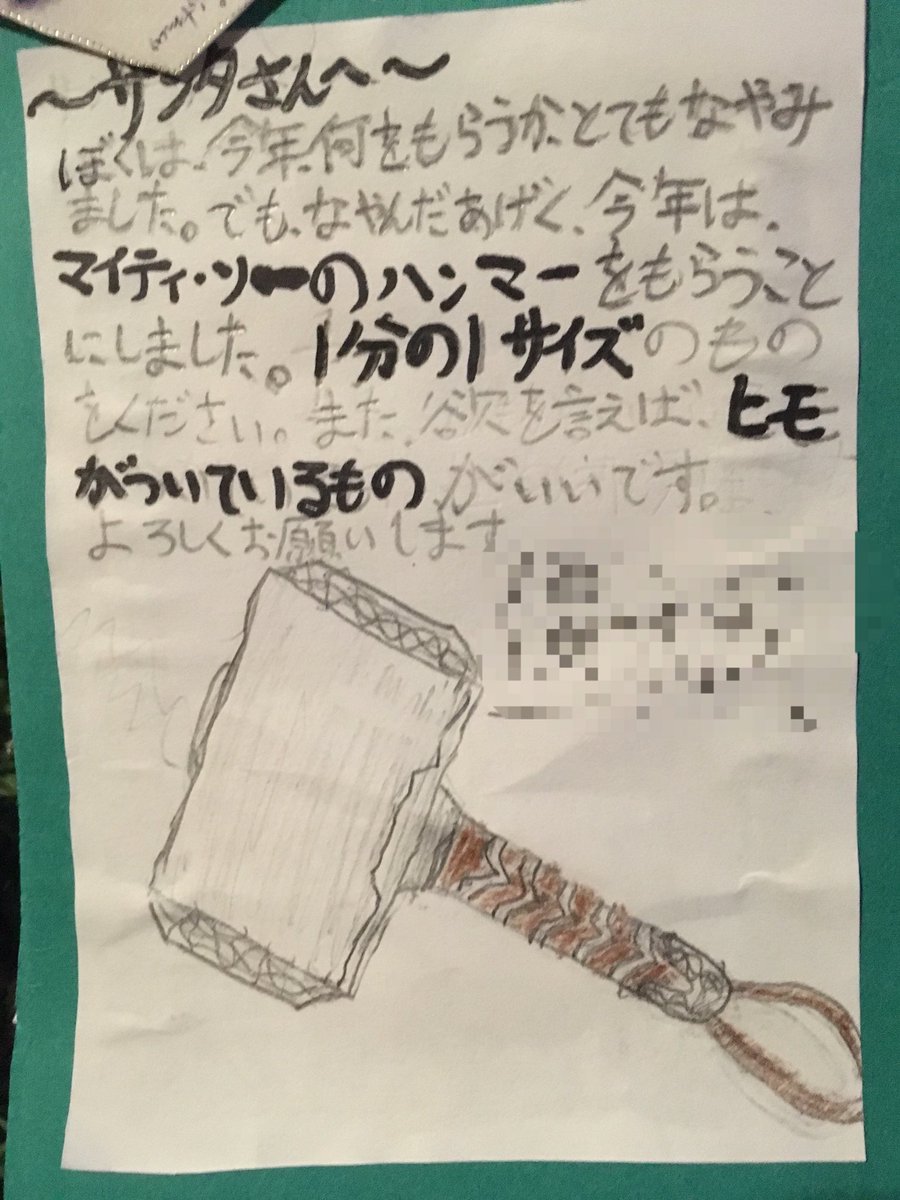 〜サンタさんへ〜
ぼくは、今年、何をもらうか、とてもなやみ
ました。でも、なやんだあげく、今年は、
マイティ・ソーのハンマーをもらうこと
にしました。1/分の1サイズのもの
をください。また、欲を言えば、ヒモ
がついているものがいいです。
よろしくお願いします